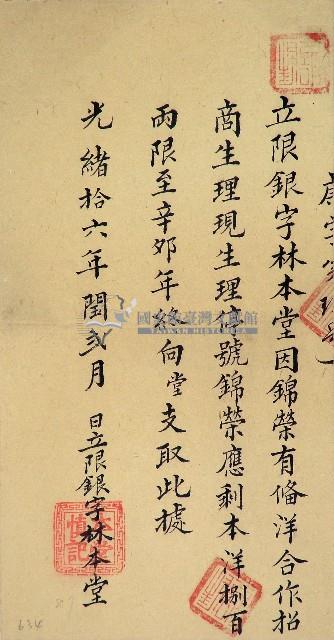 立限銀字林本堂因錦榮有備洋合作招
商生理現生理停號錦榮應剩本洋捌百
兩限至辛卯年終向堂支取此據
光緒拾六年閏弍月 日立限銀字林本堂
國立臺灣歷史博物館
TAIWAN HISTORICA
634